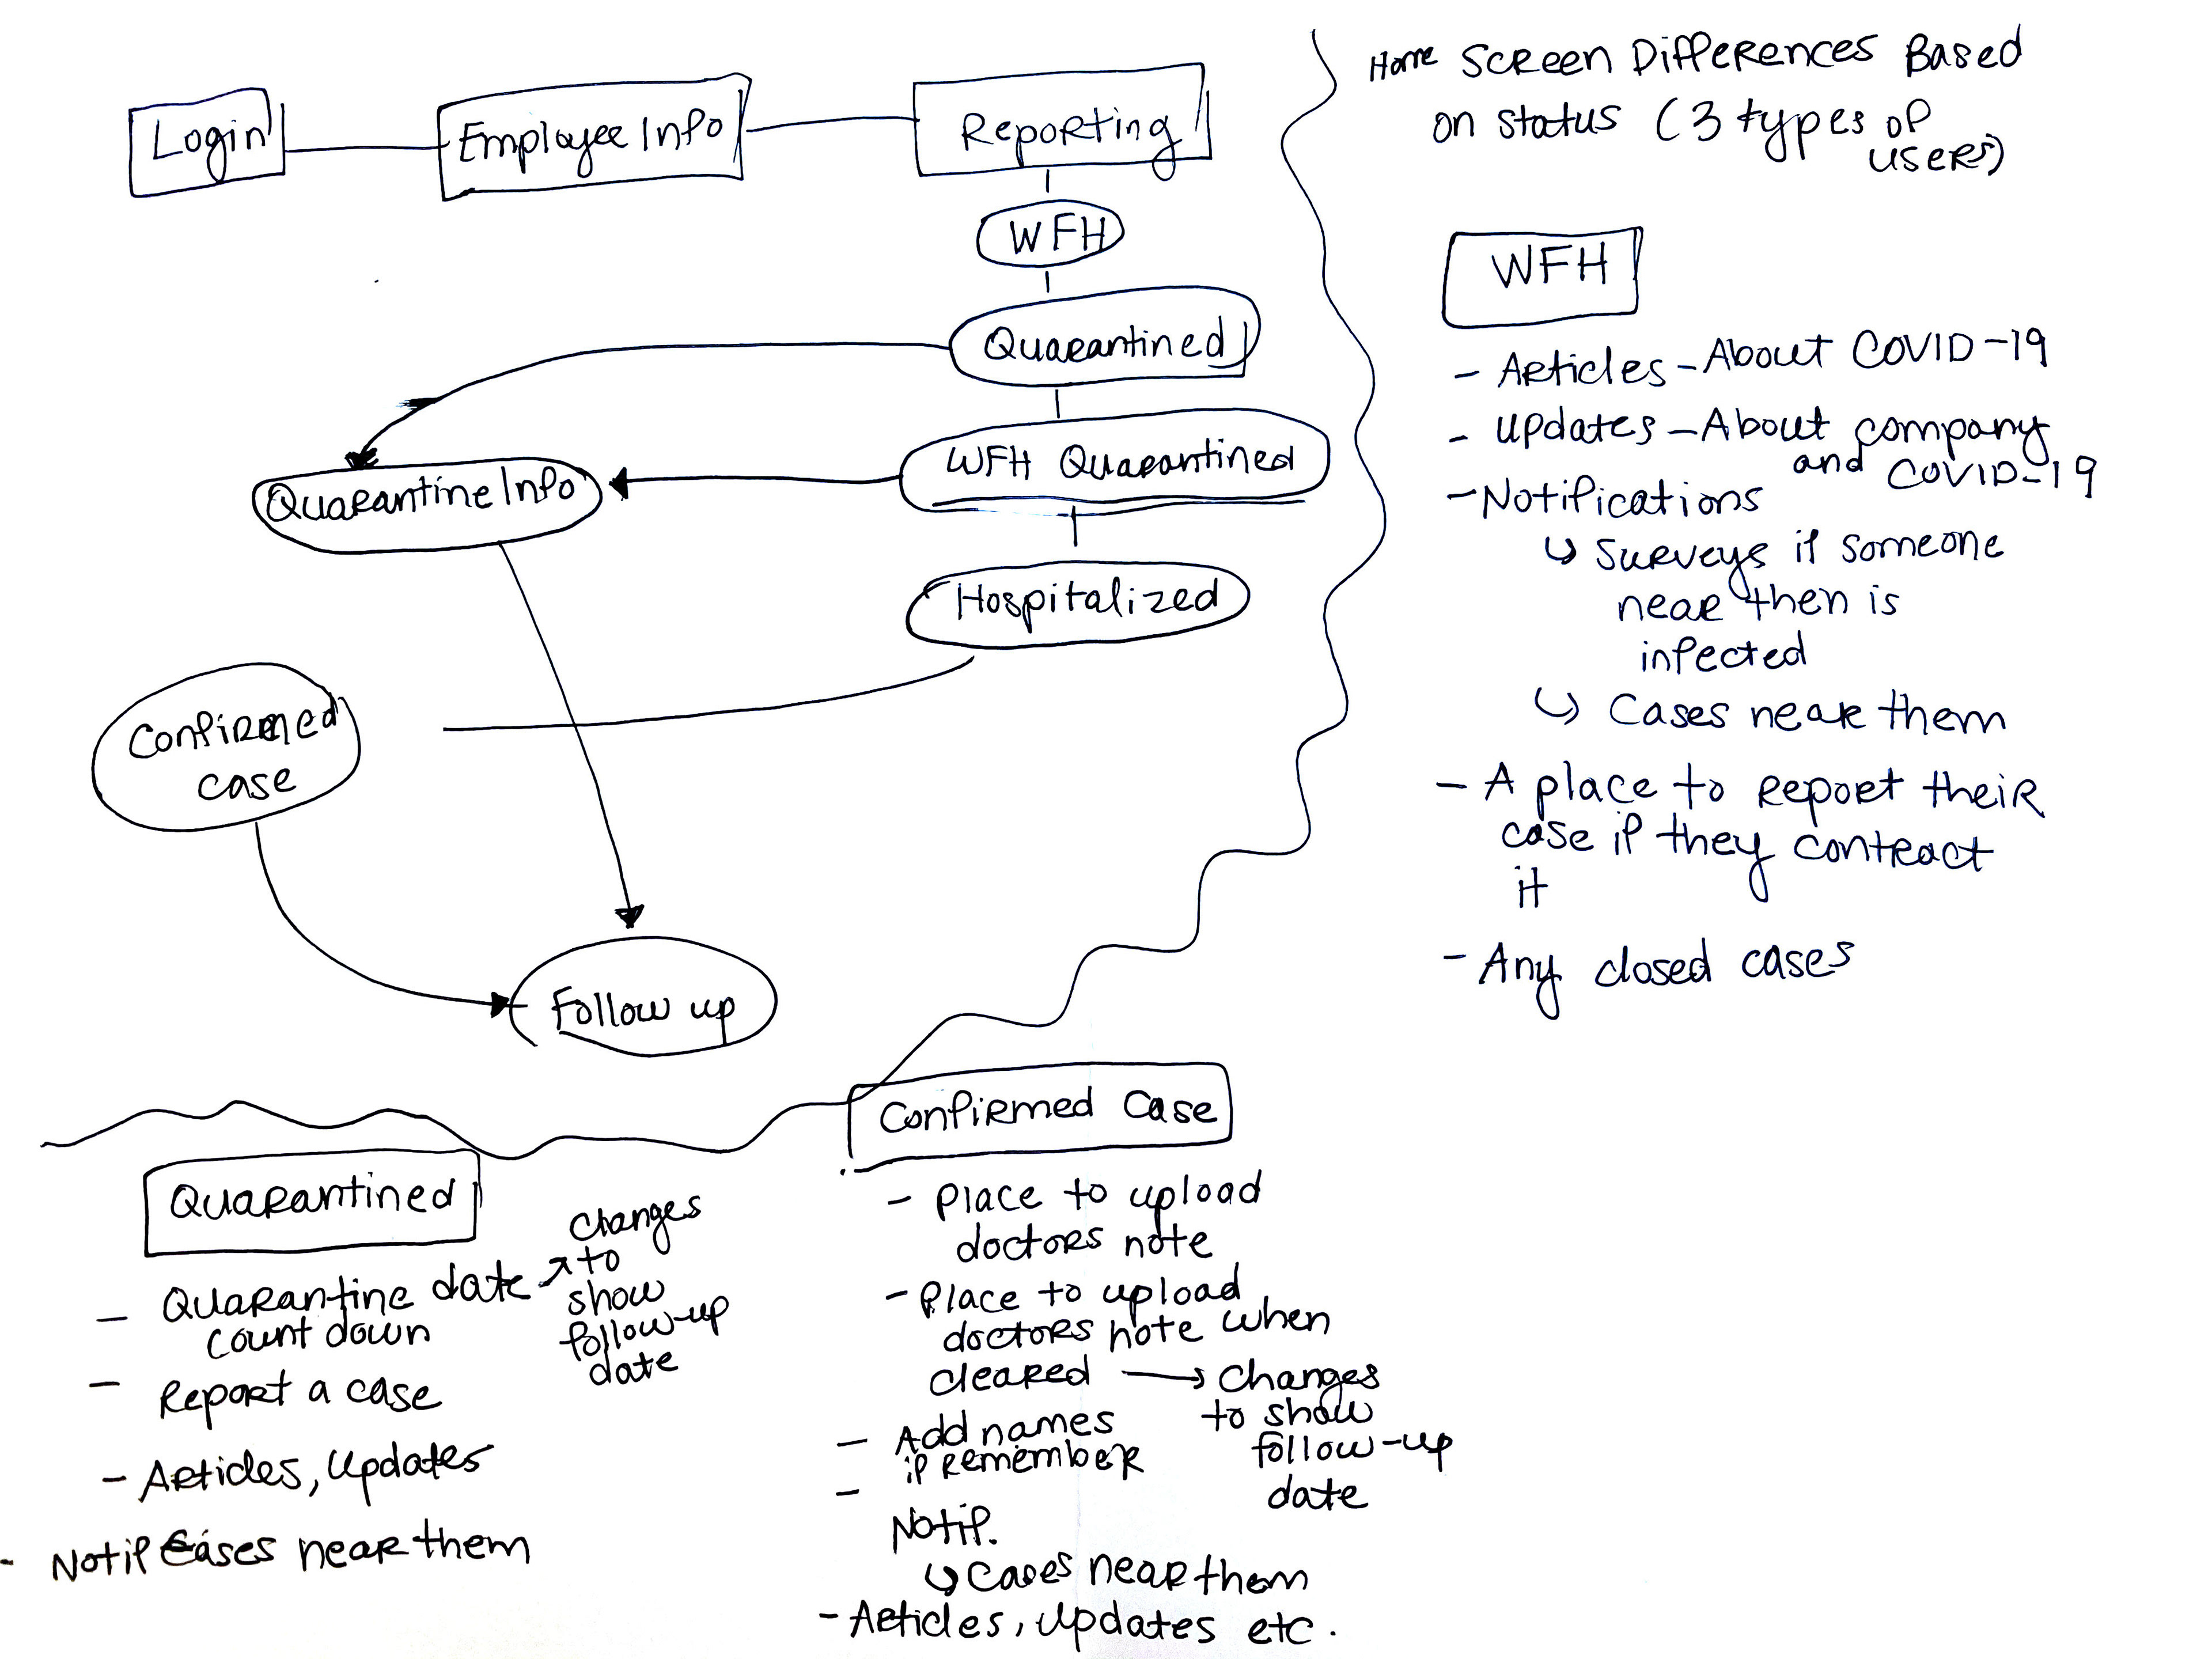 Login
Employee Info
Reporting
WFH
Quarantined
WFH Quarantined
Quarantine Info
Hospitalized
Confirmed
case
Follow up
Home Screen Differences Based
on status (3 types of
users)
WFH
- Articles - About COVID-19
- Updates - About company
and COVID-19
- Notifications
↳ Surveys if someone
near then is
infected
↳ Cases near them
- A place to report their
case if they contract
it
- Any closed cases
Quarantined
- Quarantine date ↗ changes
to
count down
show
follow-up
date
- Report a case
- Articles, Updates
- Notif Cases near them
Confirmed Case
- Place to upload
doctors note
- Place to upload
doctors note when
cleared → changes
to show
follow-up
date
- Add names
if remember
- Notif.
↳ Cases near them
- Articles, updates etc.